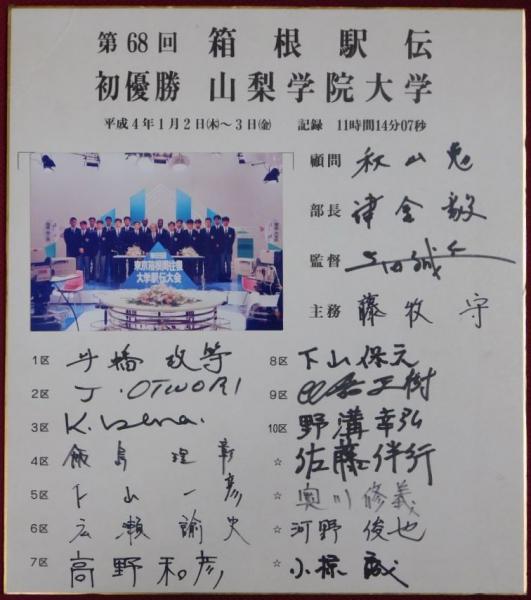 第68回 箱根駅伝
初優勝 山梨学院大学
平成4年1月2日㈭〜3日㈮ 記録 11時間14分07秒
顧問 秋山勉
部長 津金毅
監督 上田誠仁
主務 藤牧守
東京箱根間往復
大学駅伝大会
1区
2区 J.OTWORI
3区 K.Isena.
4区 飯島理彰
5区 下山一彦
6区 広瀬諭史
7区 高野和彦
8区 下山保之
9区 正樹
10区 野溝幸弘
☆ 佐藤伴行
☆ 奥川修義
☆ 河野俊也
☆ 小椋誠